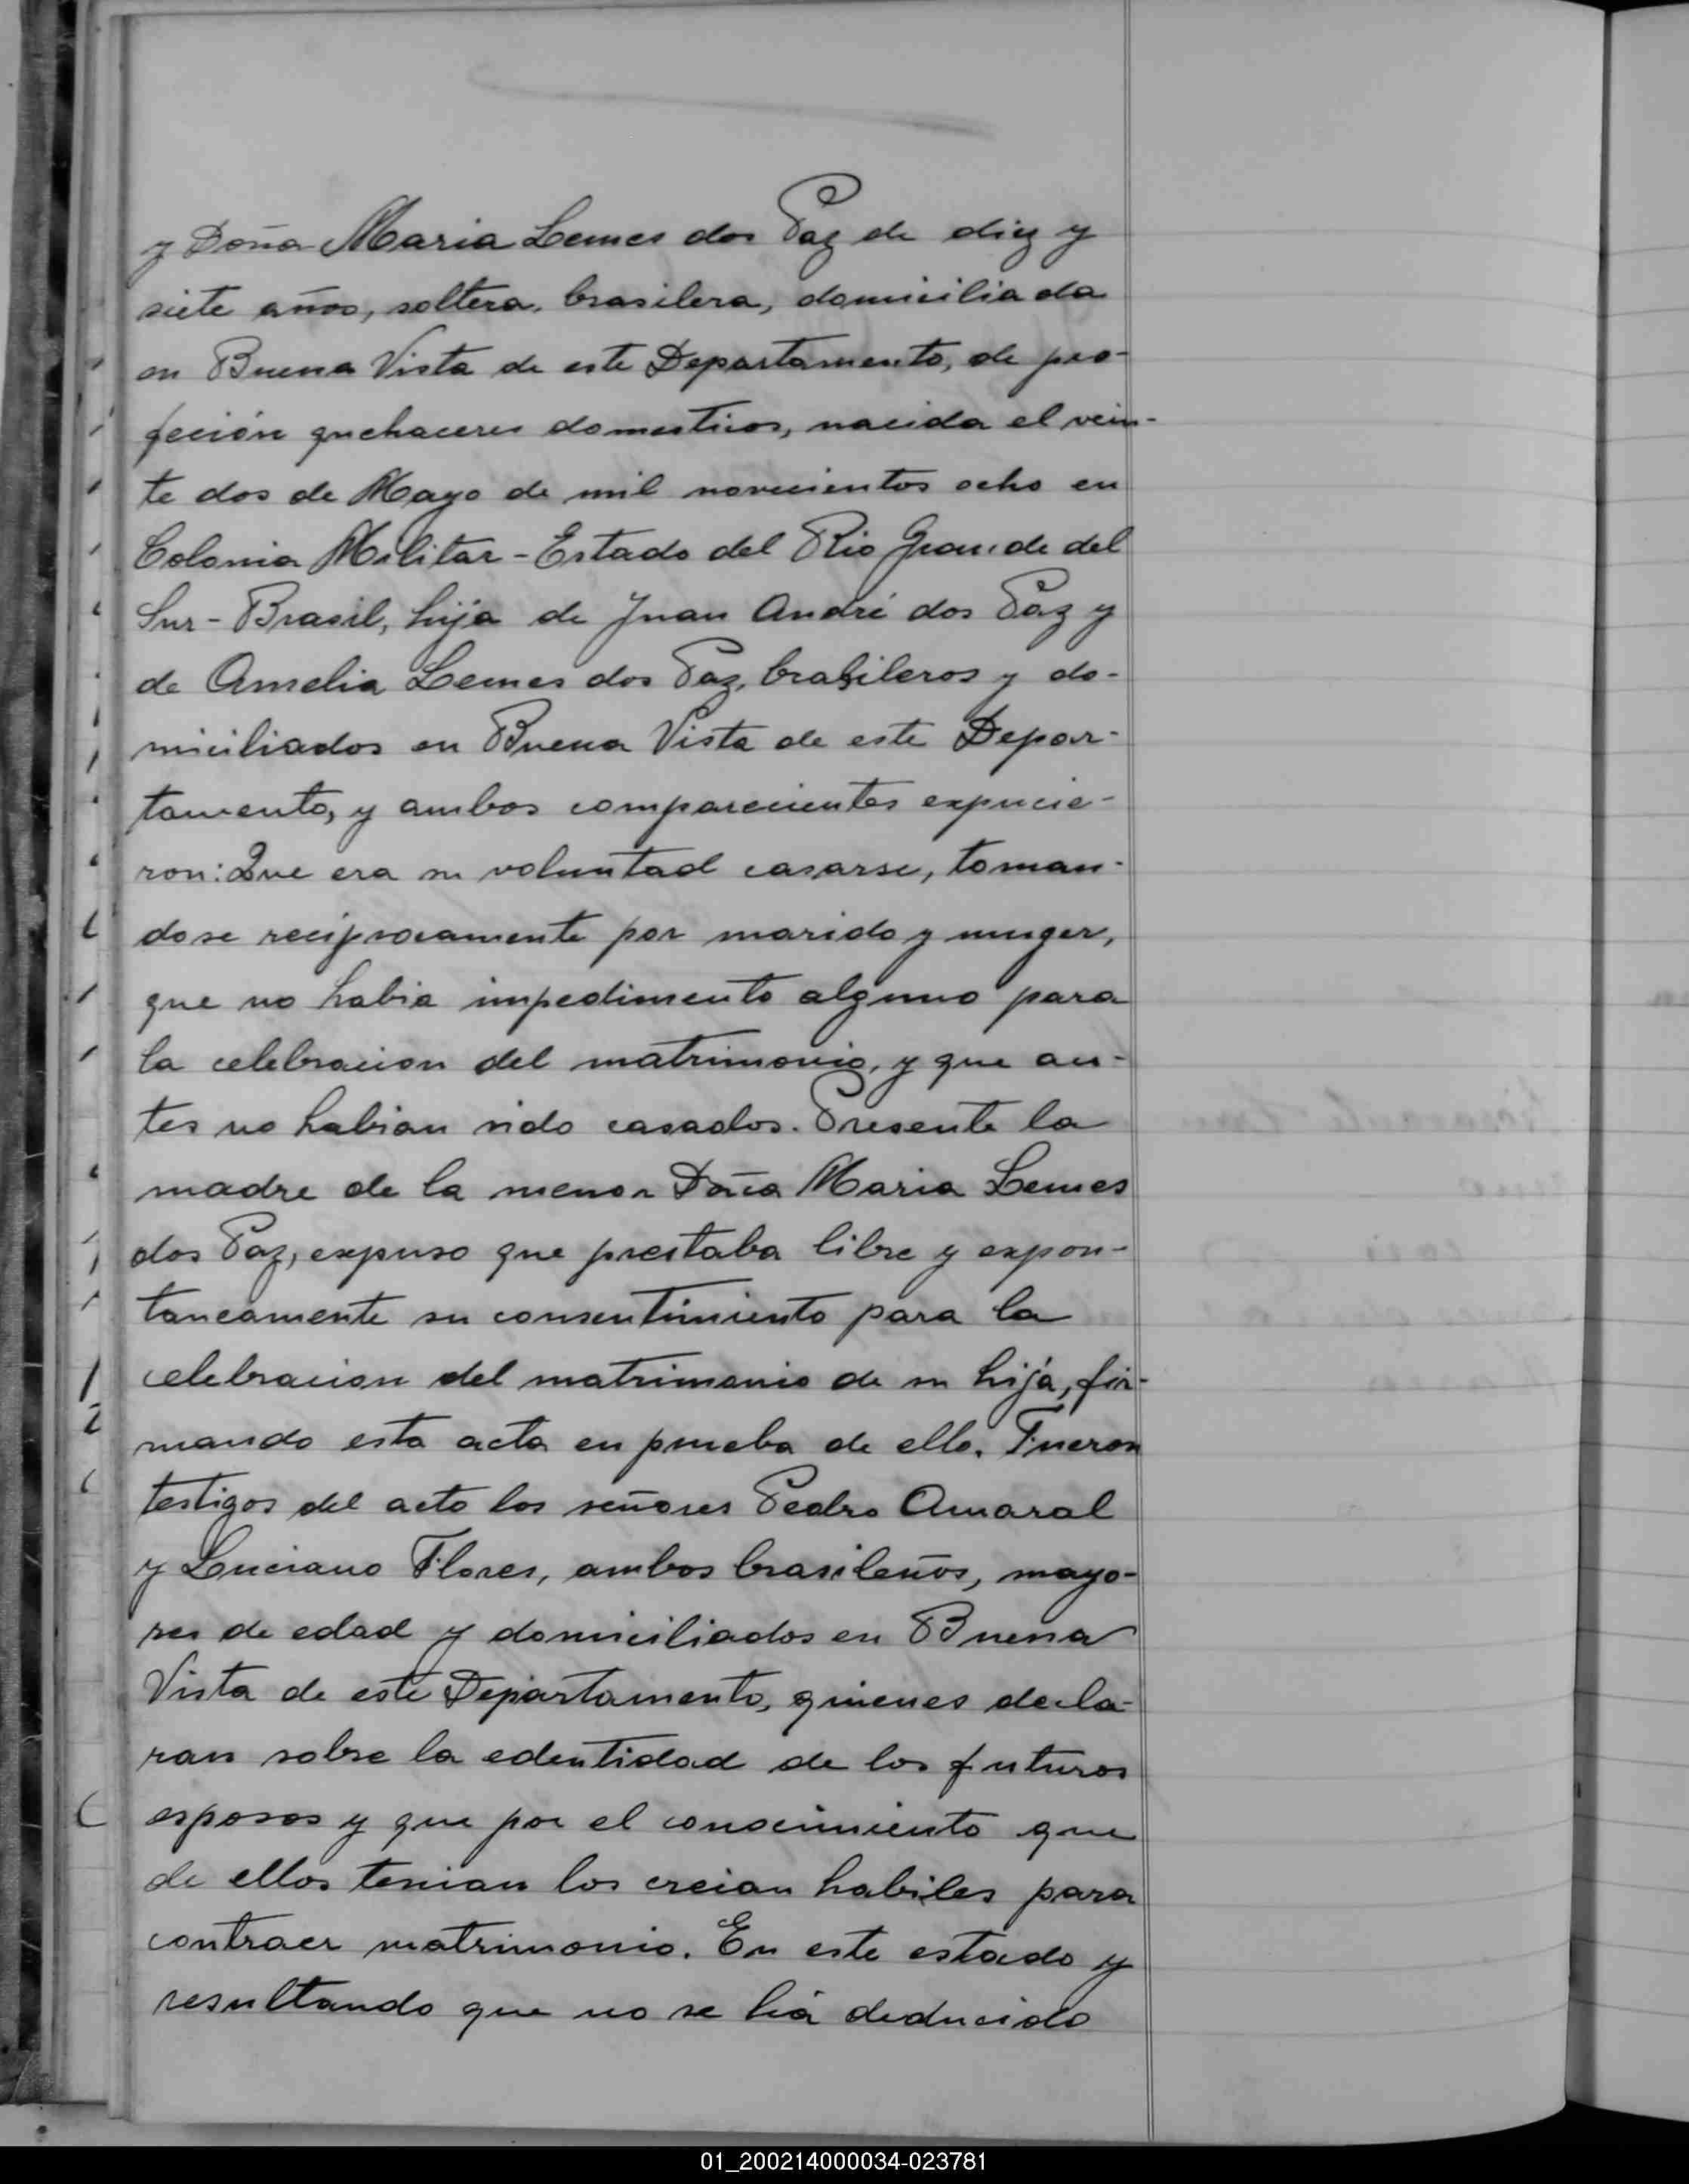 y Doña Maria Lemes dos Paz de diez y
siete años, soltera, brasilera, domiciliada
en Buena Vista de este Departamento, de pro-
feción quehaceres domesticos, nacida el vein-
te dos de Mayo de mil novecientos ocho en
Colonia Militar - Estado del Rio Grande del
Sur - Brasil, hija de Juan André dos Paz y
de Amelia Lemes dos Paz, brasileros y do-
miciliados en Buena Vista de este Depar-
tamento, y ambos comparecientes expucie-
ron: Que era su voluntad casarse, toman-
dose reciprocamente por marido y muger,
que no habia impedimento alguno para
la celebracion del matrimonio, y que an-
tes no habian sido casados. Presente la
madre de la menor Doña Maria Lemes
dos Paz, expuso que prestaba libre y expon-
taneamente su consentimiento para la
celebracion del matrimonio de su hija, fir-
mando esta acta en prueba de ello. Fueron
testigos del acto los señores Pedro Amaral
y Luciano Flores, ambos brasileños, mayo-
res de edad y domiciliados en Buena
Vista de este Departamento, quienes decla-
ran sobre la edentidad de los futuros
esposos y que por el conocimiento que
de ellos tenian los creian habiles para
contraer matrimonio. En este estado y
resultando que no se há deducido
01_200214000034-023781